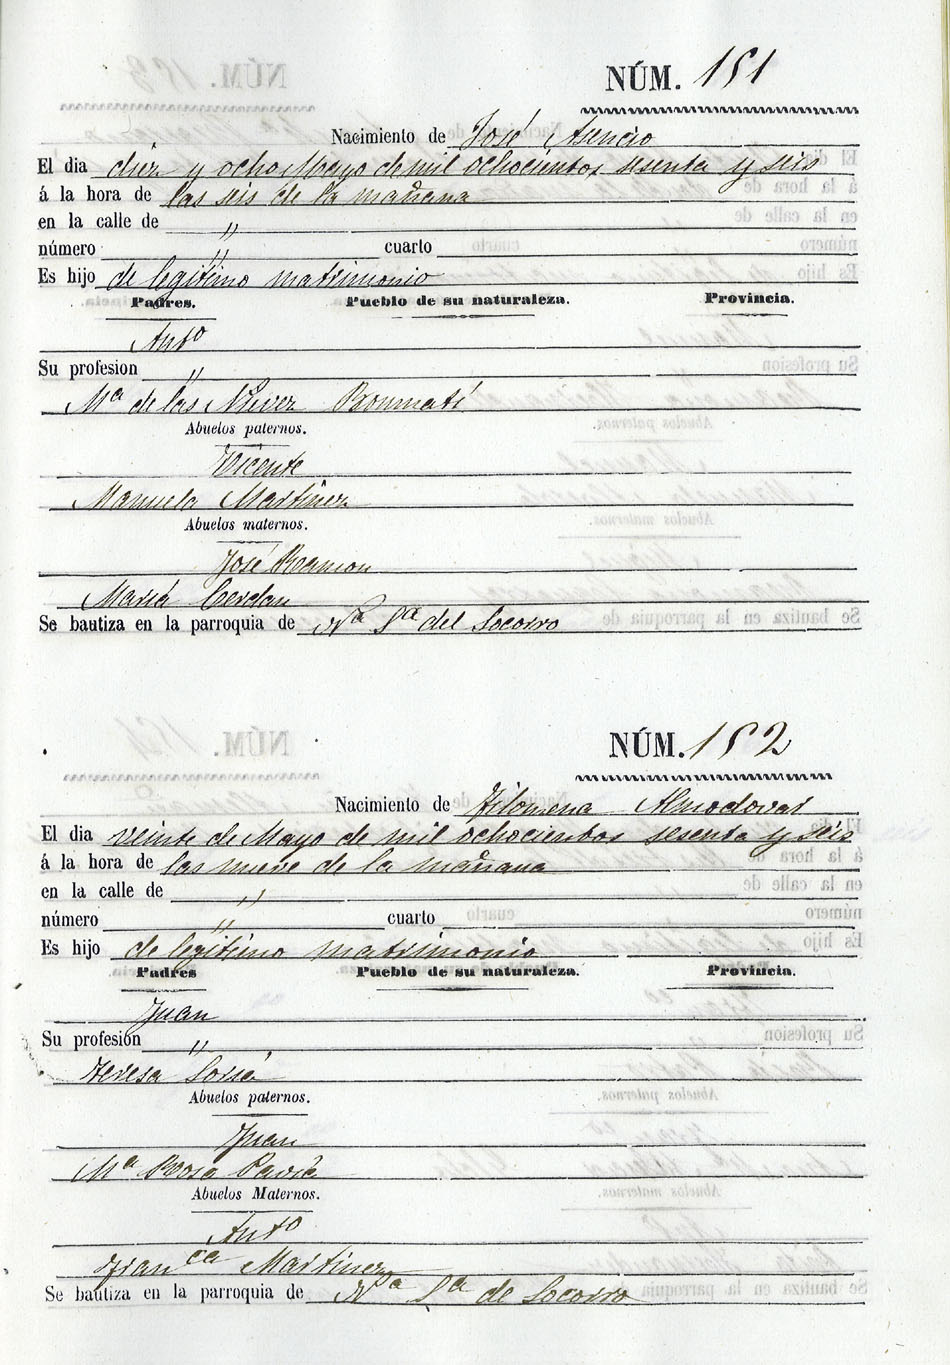 NÚM. 151
Nacimiento de José Asencio
El dia diez y ocho Mayo de mil ochocientos sesenta y seis
á la hora de las seis de la mañana
en la calle de "
número " cuarto
Es hijo de legitimo matrimonio
Padres. Pueblo de su naturaleza. Provincia.
Antº
Su profesion "
Mª de las Nieves Bonmatí
Abuelos paternos.
Vicente
Manuela Martinez
Abuelos maternos.
José Ramon
Maria Cerdan
Se bautiza en la parroquia de Nª Sª del Socorro
NÚM. 152
Nacimiento de Filomena Almodovar
El dia veinte de Mayo de mil ochocientos sesenta y seis
á la hora de las nueve de la mañana
en la calle de "
número " cuarto
Es hijo de legitimo matrimonio
Padres Pueblo de su naturaleza. Provincia.
Juan
Su profesión "
Teresa Soria
Abuelos paternos.
Juan
Mª Rosa Pavia
Abuelos Maternos.
Antº
Franca Martinez
Se bautiza en la parroquia de Nª Sª de Socorro